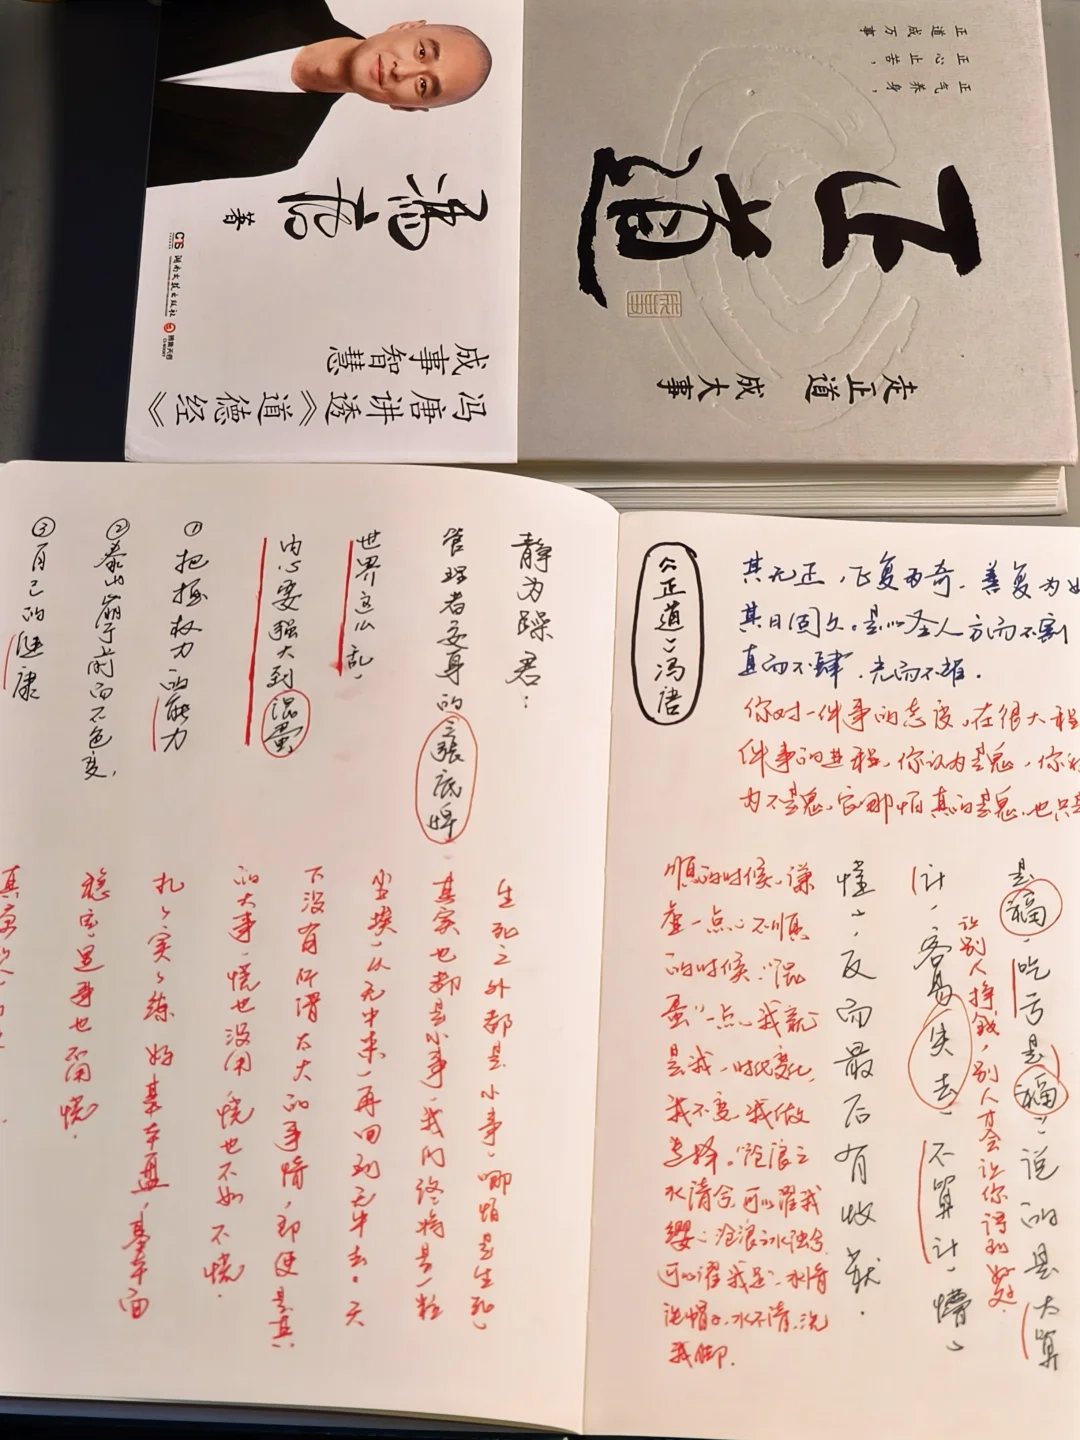 正气养身，
正心止苦，
正道成万事
正道
走正道 成大事
冯唐
著
CS 湖南文艺出版社
博集天卷
成事智慧
冯唐讲透《道德经》
《正道》冯唐
其无正，正复为奇，善复为
其日固久。是以圣人方而不割
直而不肆，光而不耀。
你对一件事的态度，在很大程
件事的进程，你认为是鬼，你
为不是鬼，它哪怕真的是鬼，也只是
是福，吃亏是福”，说的是大算
让别人挣钱，别人才会让你得到好处。
计，容易失去，不算计，懵
懂，反而最后有收获。
顺的时候，谦
虚一点，不顺
的时候，“混
蛋”一点，我就
是我，时代变化，
我不变，我做
选择。“沧浪之
水清兮，可以濯我
缨；沧浪之水浊兮，
可以濯我足”，水清
洗帽子，水不清，洗
我脚。
静为躁君：
管理者安身的三张底牌。
世界这么乱，
内心要强大到混蛋
①把握权力的能力
②泰山崩于前而不色变，
③自己的健康
生死之外都是小事，哪怕是生死，
其实也都是小事，我们终将是一粒
尘埃，从无中来，再回到无中去。天
下没有所谓太大的事情，即便是真
的大事，慌也没用，慌也不如不慌。
扎扎实实练好基本盘，基本面
稳定，遇事也不用慌。